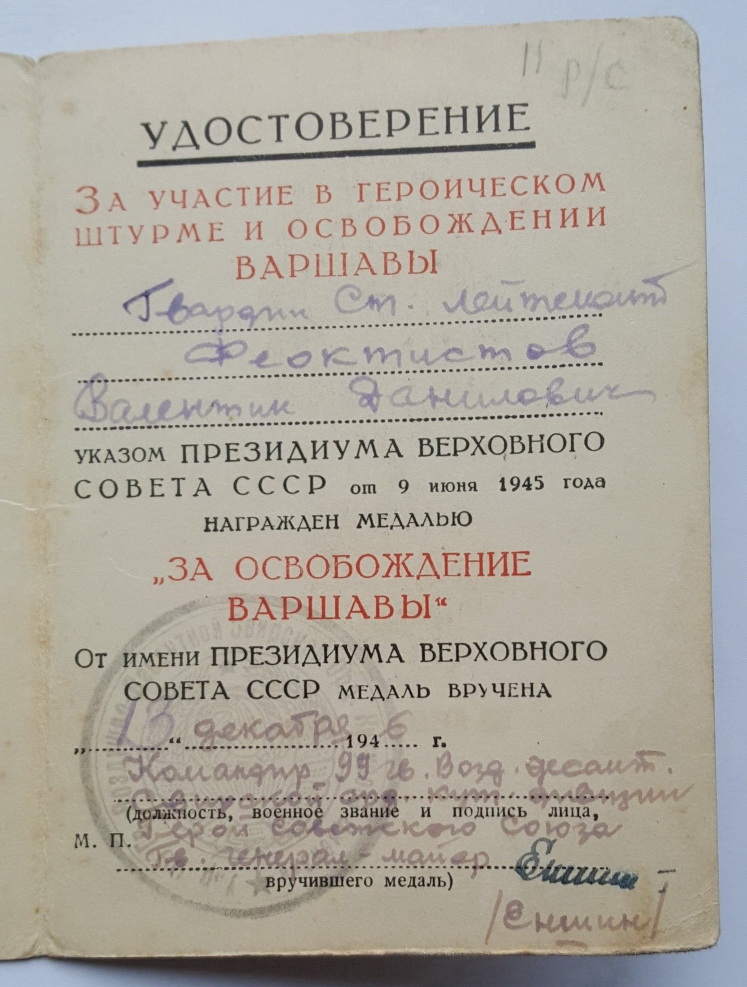 11 р/с
УДОСТОВЕРЕНИЕ
ЗА УЧАСТИЕ В ГЕРОИЧЕСКОМ
ШТУРМЕ И ОСВОБОЖДЕНИИ
ВАРШАВЫ
Гвардии Ст. лейтенант
Феоктистов
Валентин Данилович
УКАЗОМ ПРЕЗИДИУМА ВЕРХОВНОГО
СОВЕТА СССР от 9 июня 1945 года
НАГРАЖДЕН МЕДАЛЬЮ
„ЗА ОСВОБОЖДЕНИЕ
ВАРШАВЫ“
ОТ ИМЕНИ ПРЕЗИДИУМА ВЕРХОВНОГО
СОВЕТА СССР МЕДАЛЬ ВРУЧЕНА
„13“ декабря 1946 г.
Командир 99 гв. Возд. десант.
Свирской орд. Кут. дивизии
(должность, военное звание и подпись лица,
Герой Советского Союза
М. П.
Гв. генерал-майор Еншин
вручившего медаль)
/Еншин/